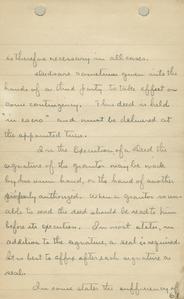 is therefore necessary in all cases.
Deeds are sometimes given into the
hands of a third party to take effect on
some contingency. This deed is held
"in escro" and must be delivered at
the appointed time.
In the Execution of a Deed the
signature of the grantor may be made
by his own hand, or the hand of another
properly authorized. When a grantor is un-
able to read the deed should be read to him
before its execution. In most states, in
addition to the signature, a seal is required.
It is best to affix after each signature a
seal.
In some states the sufficiency of